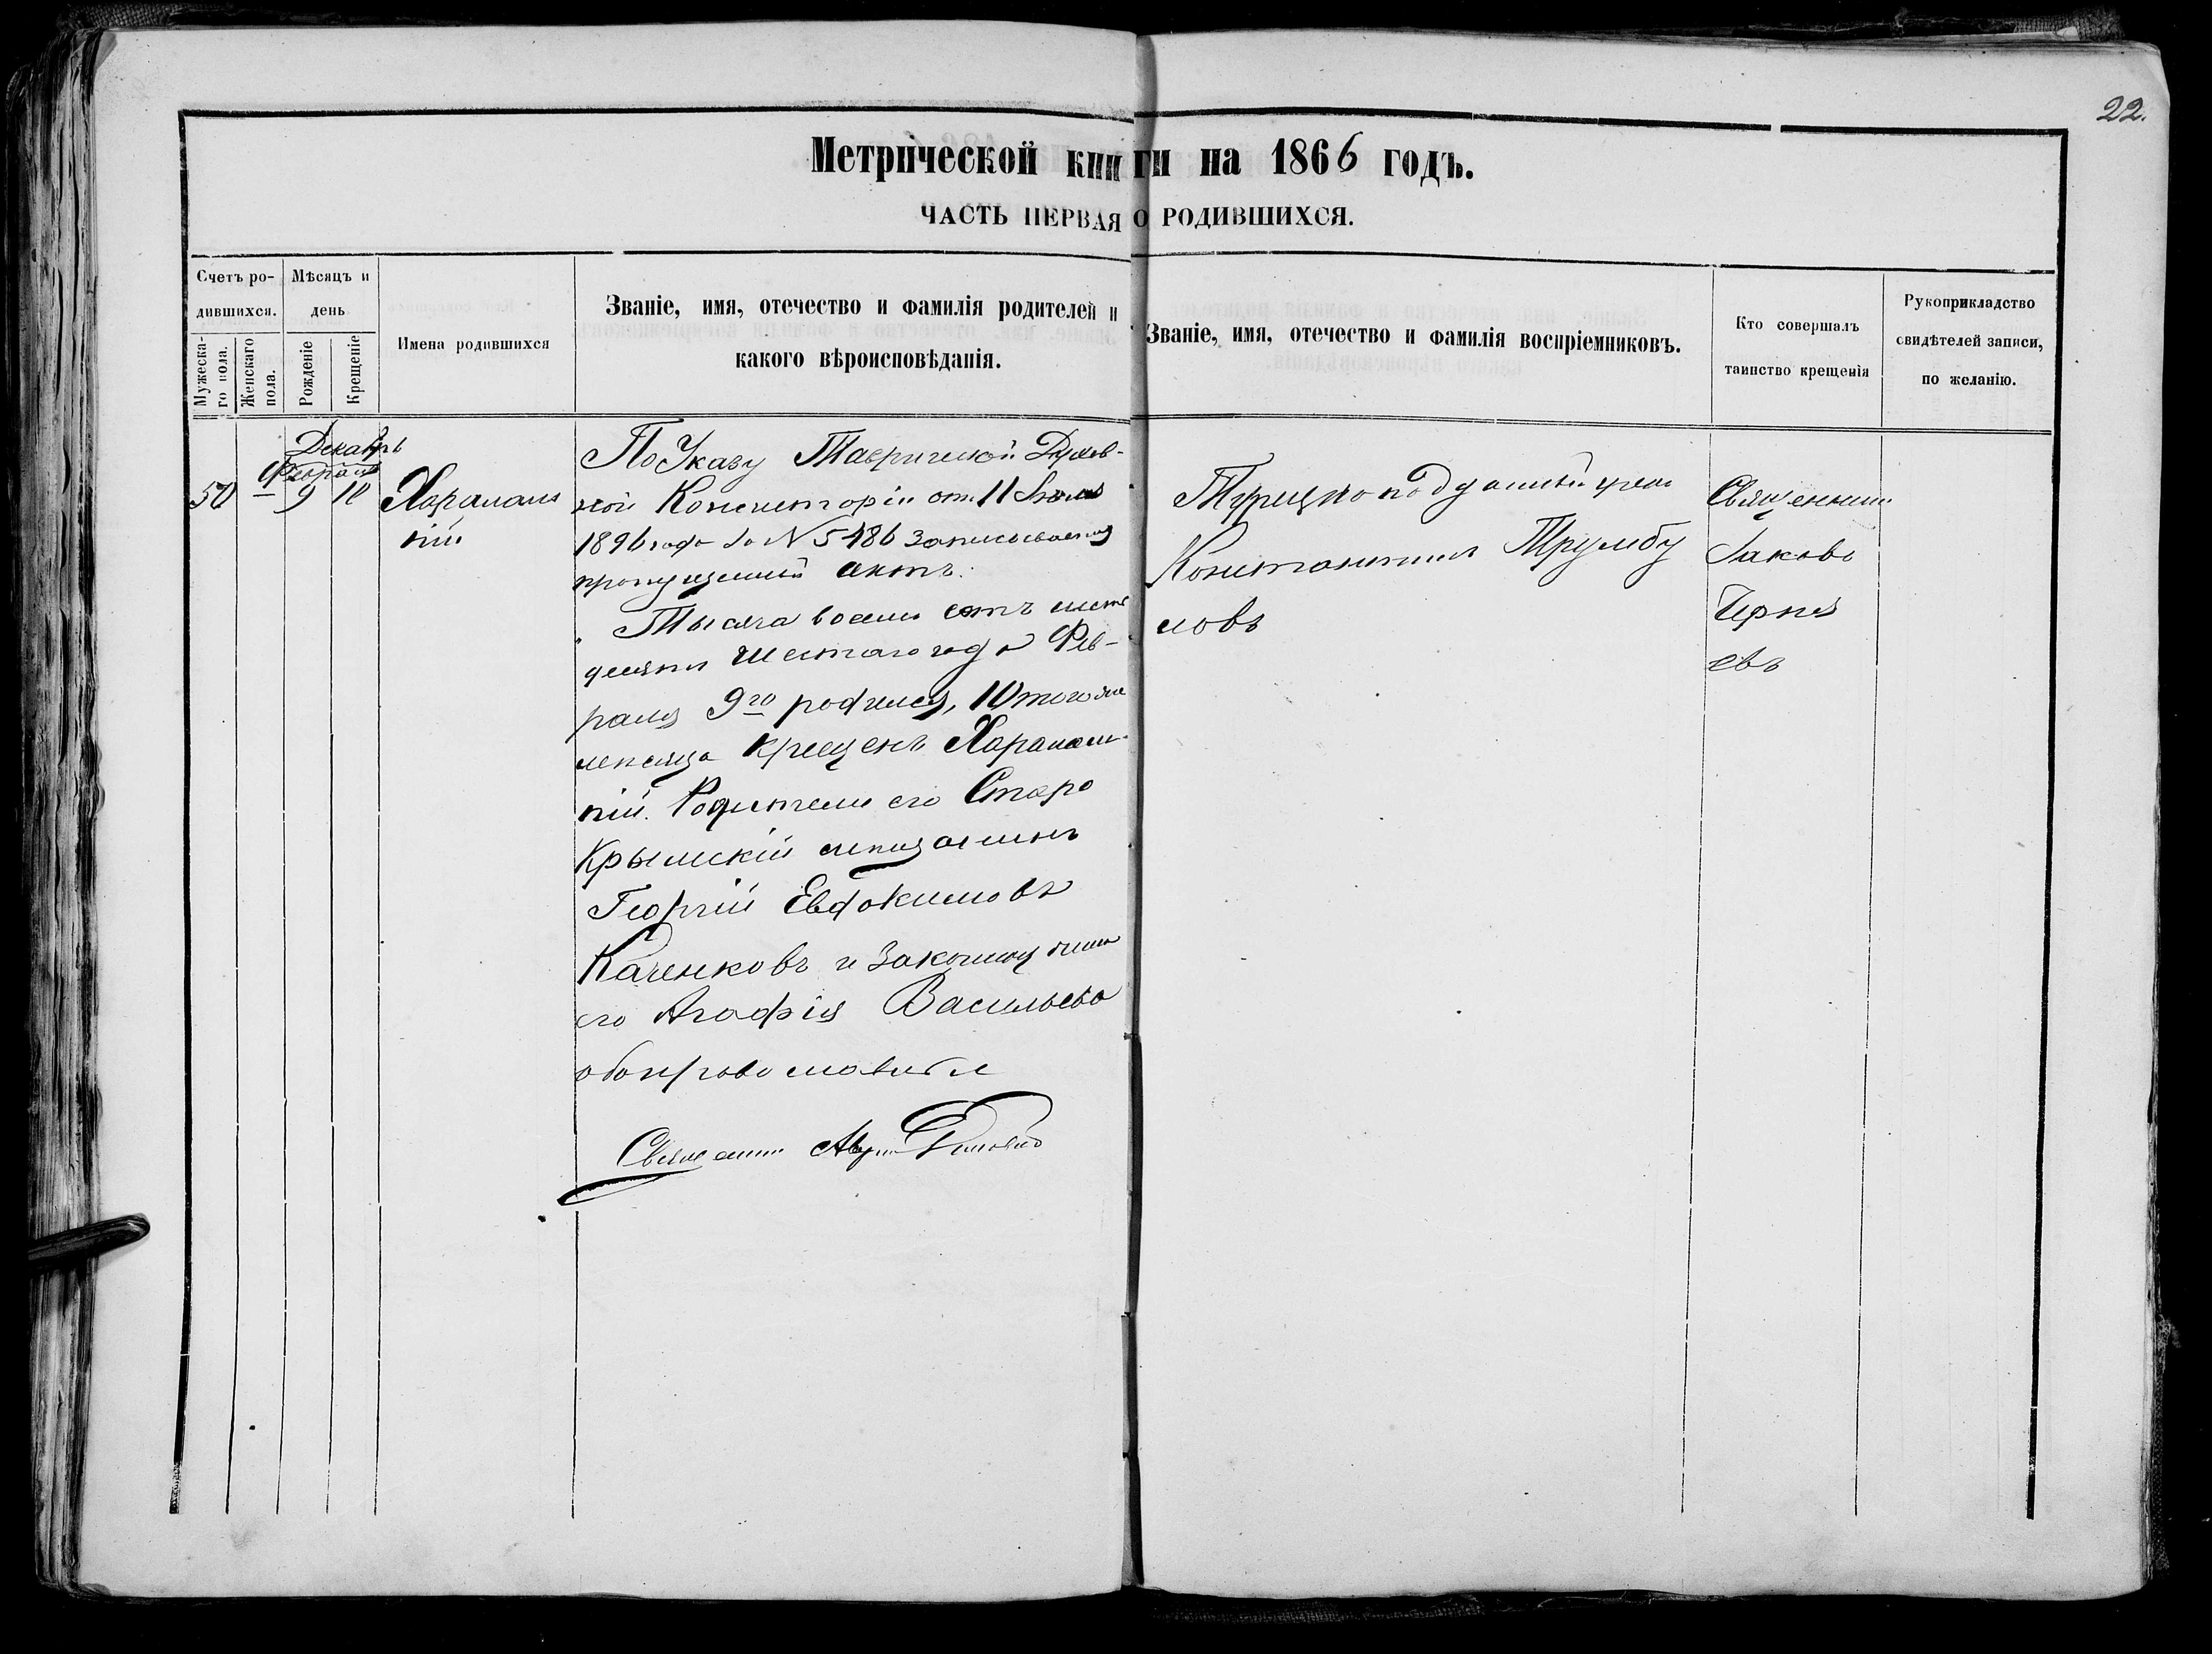 22.
Метрической книги на 1866 годъ.
ЧАСТЬ ПЕРВАЯ О РОДИВШИХСЯ.
Счетъ ро-
дившихся.
Мужеска-
го пола.
Женскаго
пола.
Мѣсяцъ и
день
Рожденіе
Крещеніе
Имена родившихся
Званіе, имя, отечество и фамилія родителей и
какого вѣроисповѣданія.
Званіе, имя, отечество и фамилія воспріемниковъ.
Кто совершалъ
таинство крещенія
Рукоприкладство
свидѣтелей записи,
по желанію.
Декабрь
Февраль
50 – 9 10
Харалам
пій
По Указу Таврической Духов-
ной Консисторіи отъ 11 Іюля
1896 года за № 5486 записывается
пропущенный актъ:
Тысяча восемь сотъ шесть
десятъ шестаго года Фев-
раля 9го родился, 10 того же
мѣсяца крещенъ Харалам-
пій. Родители его Старо
Крымскій мѣщанинъ
Георгій Евдокимовъ
Каченковъ и законная жена
его Агафія Васильева
оба православные
Священникъ
Турецко подданный грекъ
Константинъ Трумбу
ловъ
Священникъ
Іаковъ
Черня
евъ